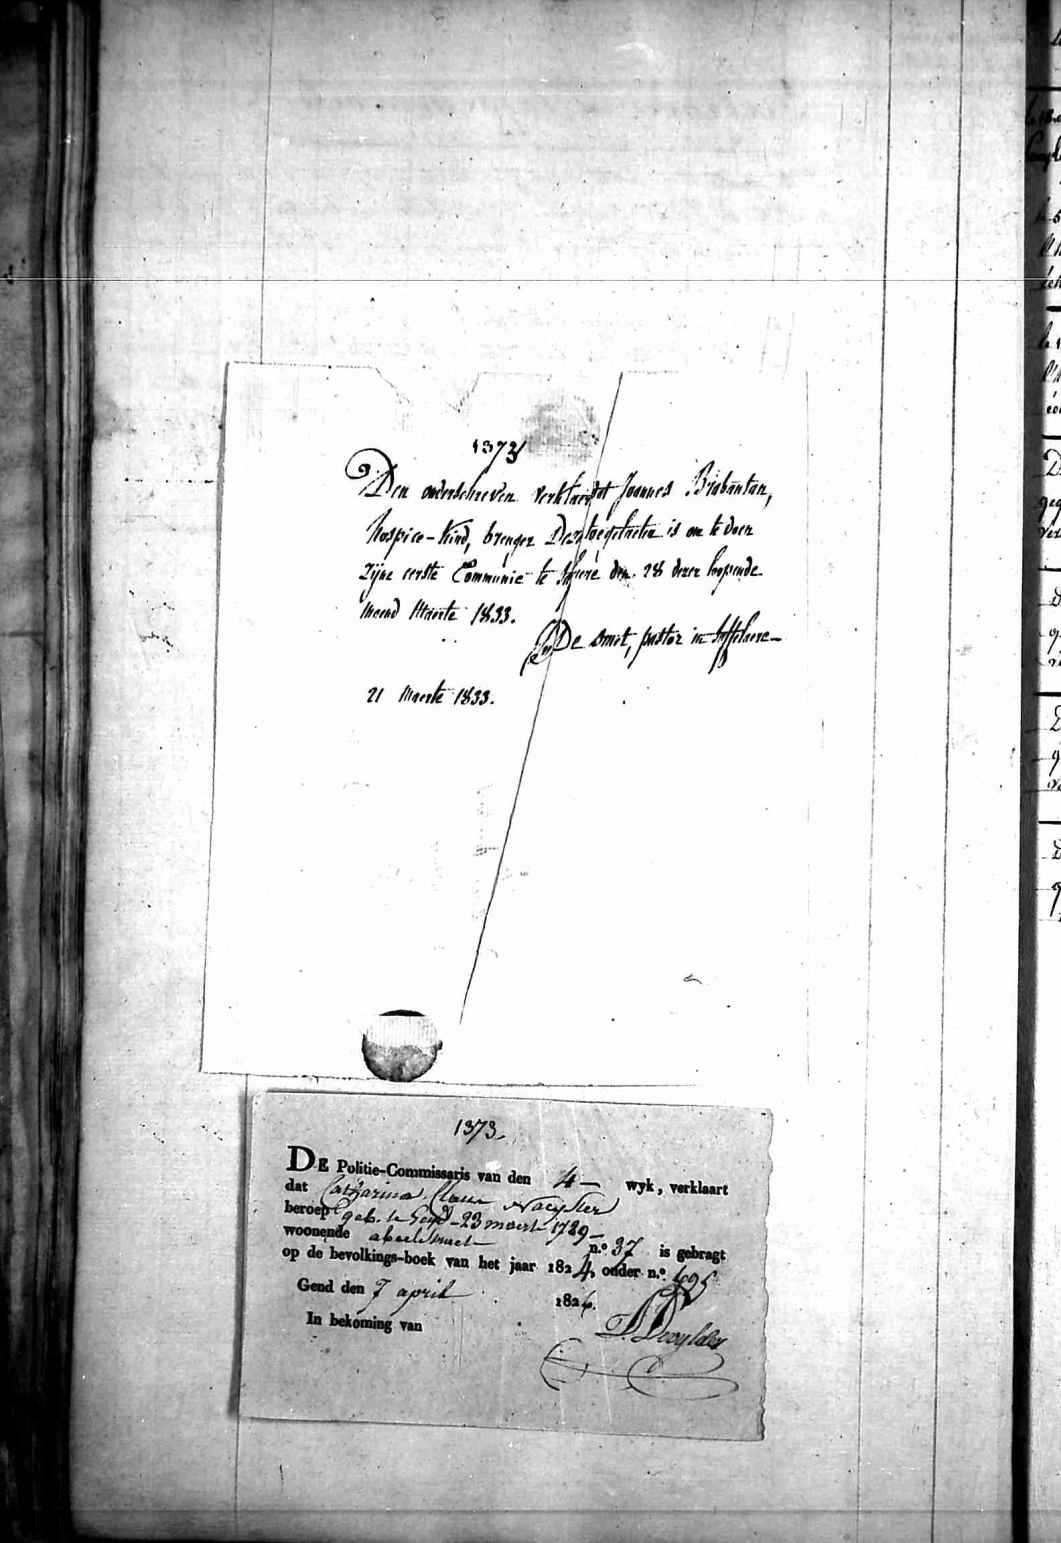 1373
Den onderschreven verklaert dat Joannes Brabantan,
Hospice-Kind, brenger Dezer toegelaeten is om te doen
zijne eerste Communie te den 28 dezer loopende
maend Maerte 1833.
De Smet, pastor in Saffelaere
21 Maerte 1833.
1373.
DE Politie-Commissaris van den 4 - wyk, verklaart
dat Catharina
beroep geb. te Gend - 23 maert 1789 -
woonende n.o 37 is gebragt
op de bevolkings-boek van het jaar 1824, onder n.o 495
Gend den 7 april 1826.
In bekoming van